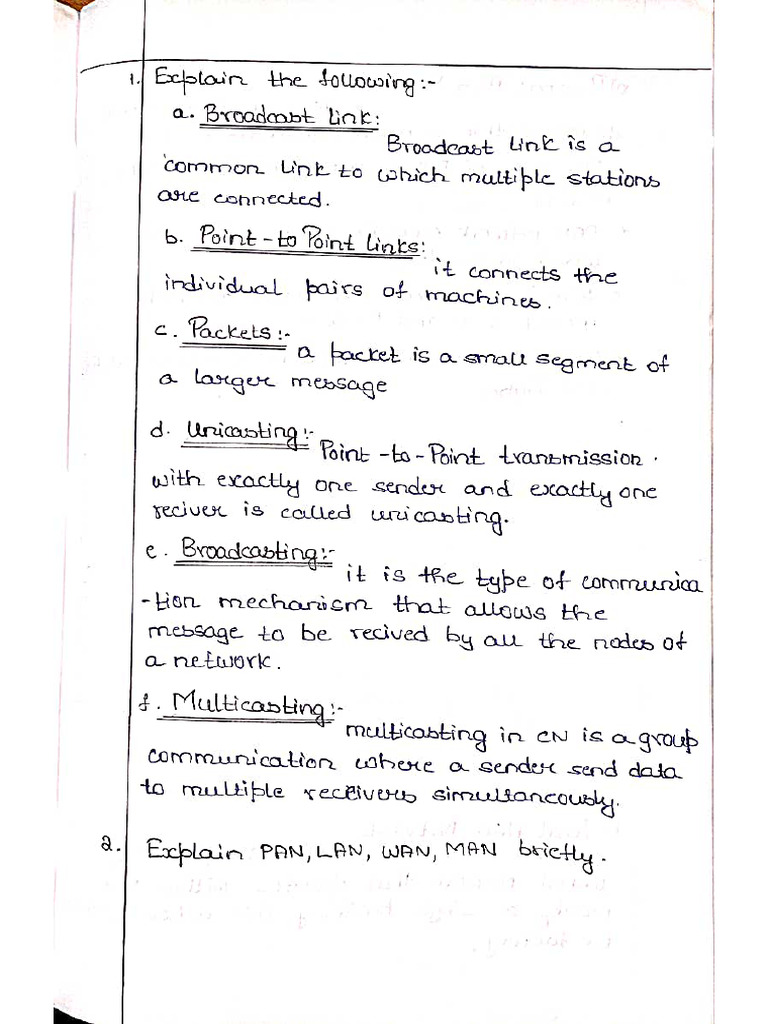 1. Explain the following:-
a. Broadcast link:
Broadcast link is a
common link to which multiple stations
are connected.
b. Point-to Point links:
it connects the
individual pairs of machines.
c. Packets:-
a packet is a small segment of
a larger message
d. Unicasting:-
Point-to-Point transmission.
with exactly one sender and exactly one
reciver is called unicasting.
e. Broadcasting:-
it is the type of communica
-tion mechanism that allows the
message to be recived by all the nodes of
a network.
f. Multicasting:-
multicasting in CN is a group
communication where a sender send data
to multiple receivers simultaneously.
2. Explain PAN, LAN, WAN, MAN briefly.